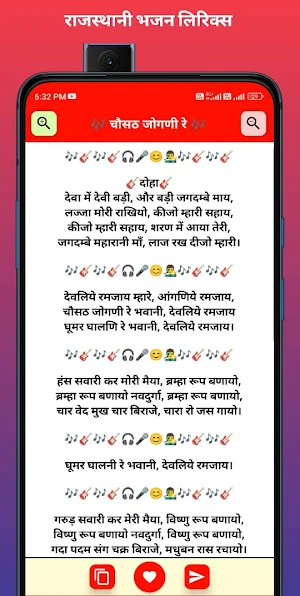 राजस्थानी भजन लिरिक्स
5:32 PM
🎶 चौसठ जोगणी रे 🎶
🎸दोहा🎸
देवा में देवी बड़ी, और बड़ी जगदम्बे माय,
लज्जा मोरी राखियो, कीजो म्हारी सहाय,
कीजो म्हारी सहाय, शरण में आया तेरी,
जगदम्बे महारानी माँ, लाज रख दीजो म्हारी।
देवलिये रमजाय म्हारे, आंगणिये रमजाय,
चौसठ जोगणी रे भवानी, देवलिये रमजाय
घूमर घालणि रे भवानी, देवलिये रमजाय।
हंस सवारी कर मोरी मैया, ब्रम्हा रूप बणायो,
ब्रम्हा रूप बणायो नवदुर्गा, ब्रम्हा रूप बणायो,
चार वेद मुख चार बिराजे, चारा रो जस गायो।
घूमर घालनी रे भवानी, देवलिये रमजाय।
गरुड़ सवारी कर मेरी मैया, विष्णु रूप बणायो,
विष्णु रूप बणायो नवदुर्गा, विष्णु रूप बणायो,
गदा पदम संग चक्र बिराजे, मधुबन रास रचायो।